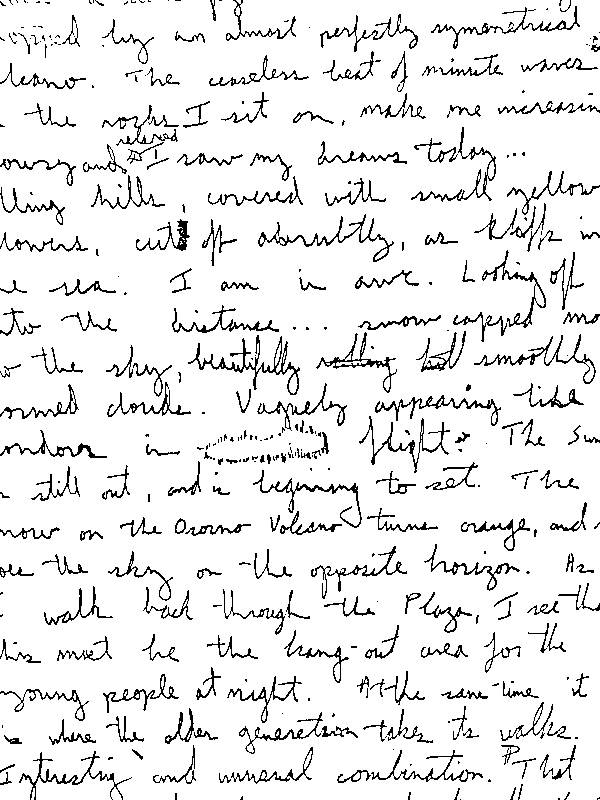 opped by an almost perfectly symmetrical
lcano. The ceaseless beat of minute waves
the rocks I sit on, make me increasin
relaxed
owsy and I saw my dreams today...
lling hills, covered with small yellow
lowers, cut off abrubtly, as kloffs in
e sea. I am in awe. Looking off
nto the distance... snow capped mo
o the sky, beautifully smoothly
ormed clouds. Vaguely appearing like
ondors in flight. The sun
s still out, and is beginning to set. The
now on the Osorno Volcano turns orange, and s
oes the sky on the opposite horizon. As
I walk back through the Plaza, I see tha
his must be the hang-out area for the
young people at night. At the same time it
is where the older generation takes its walks.
Interesting and unusual combination. That